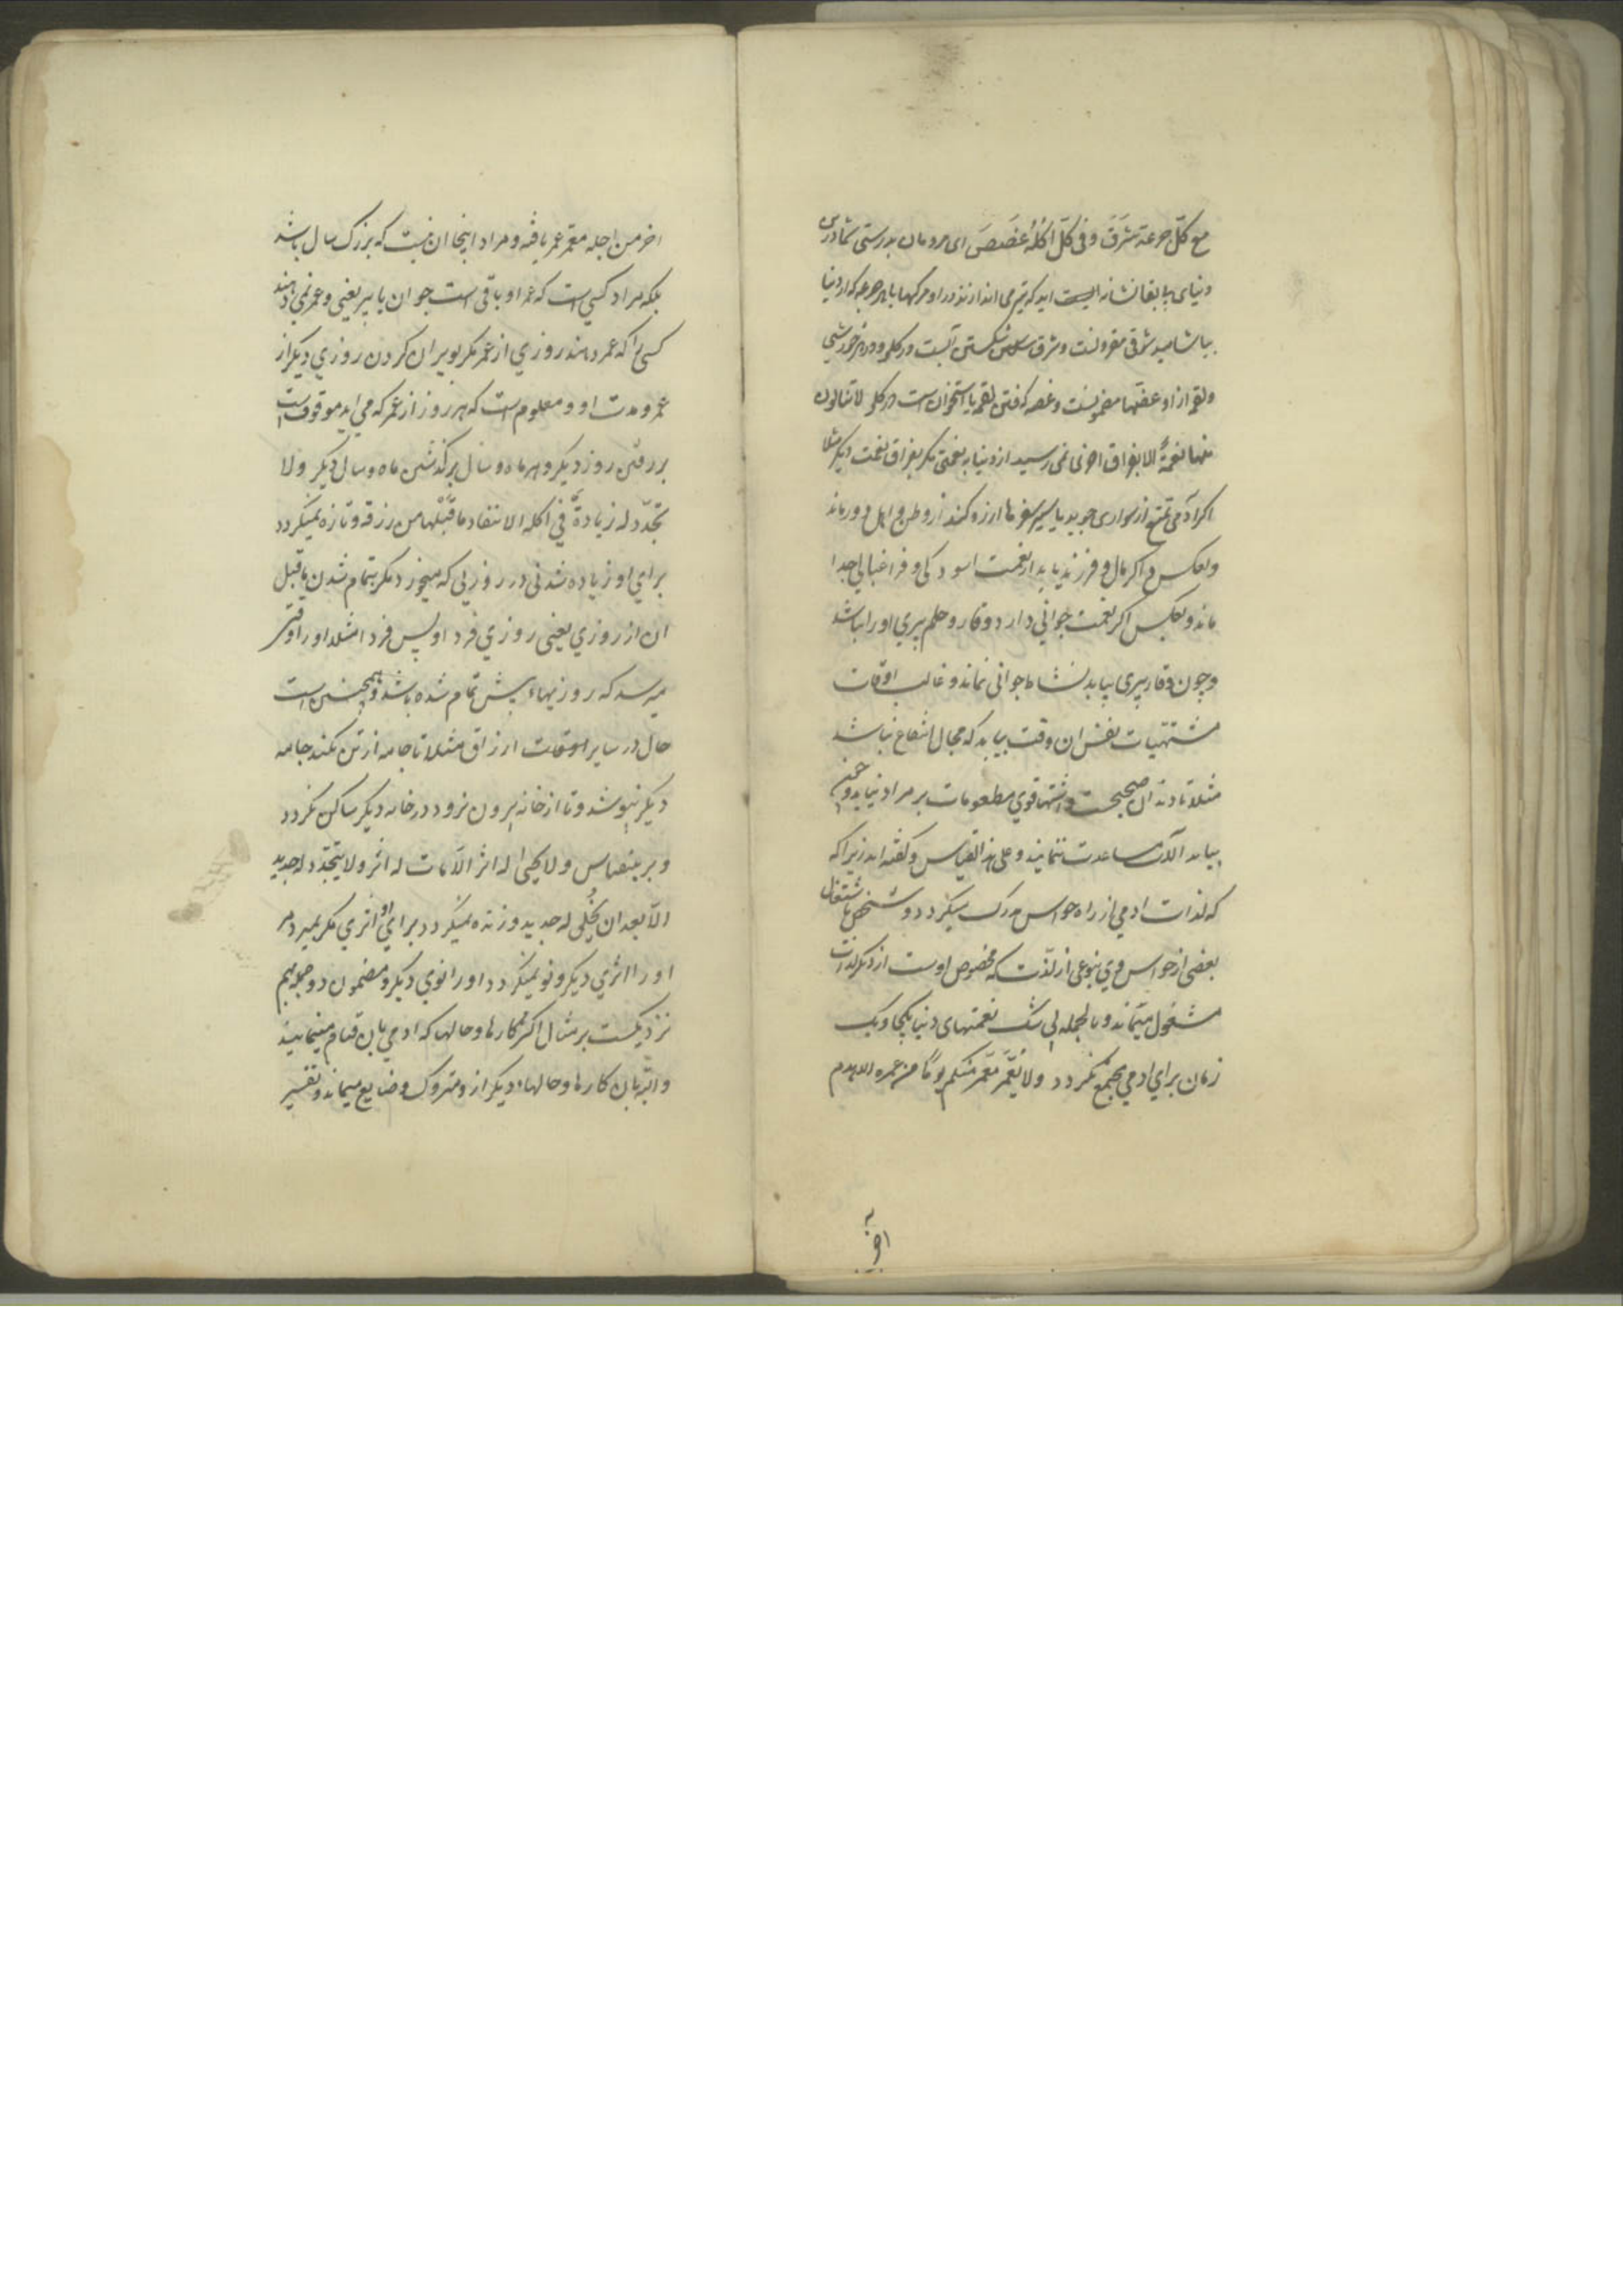 مع کلّ جرعة شَرَقٌ و فی کلّ اکلة غَصَصٌ ای مردمان بدرستی شما درین
دنیای بی بقا نشانه ایست اید که تیر می اندازند در او مرکها با هر جرعه که از دنیا
بیاشامید شرقی مقرونست و شرق شکستن آبست در کلو و در هر خورشی
و لقمه از او غصّها مضمونست و غصه کرفتن لقمه یا استخوان است در کلو لا تنالون
منها نعمةً الا بفراق اخری نمی رسید از دنیا به نعمتی مکر بفراق نعمت دیکر مثلا
اکر آدمی تمتع از سواری جوید یا سیر سفرها ارزو کند از وطن و اهل دور ماند
و بعکس و اکر مال و فرزند یابد از نعمت اسودکی و فراغبالی جدا
ماند و بعکس اکر نعمت جوانی دارد وقار و حلم پیری او را نباشد
و چون وقار پیری بیابد نشاط جوانی نماند و غالب اوقات
مشتهیات نفس ان وقت بیابد که مجال انتفاع نباشد
مثلا تا دندان صحیحست و اشتها قوی مطعومات بر مراد نیابد و چون
بیابد آلات مساعدت ننمایند و علی هذا القیاس و کفته اند زیرا که
که لذات ادمی از راه حواس مدرک میکردد و شخص باشتغال
بعضی از حواس وی بنوعی از لذّت که مخصوص اوست از دیکر لذات
مشغول میماند و بالجمله بی شک نعمتهای دنیا بیکجا و یک
زمان برای ادمی مجتمع نکردد و لا یُعَمَّر مُعَمَّر منکم یومًا من عمره الا بهدم
اخر من اجله معمّر عمر یافته و مراد اینجا ان نیست که بزرک سال باشد
بلکه مراد کسی است که عمر او باقی است جوان یا پیر یعنی و عمر نمی دهند
کسی را که عمر دهند روزی از عمر مکر بویران کردن روزی دیکر از
عمر و مدت او و معلوم است که هر روز از عمر که می اید موقوف است
بر رفتن روز دیکر و هر ماه و سال بر کذشتن ماه و سال دیکر و لا
تجدّد له زیادةٌ فی اکله الا بنفاد ما قبلها من رزقه و تازه نمیکردد
برای او زیاده شدنی در روزیی که میخورد مکر بتمام شدن ما قبل
ان از روزی یعنی روزی فردا و پس فردا مثلا او را وقتی
میرسد که روزیهاء پیش تمام شده باشد و همچنین است
حال در سایر اوقات ارزاق مثلا تا جامه از تن نکند جامه
دیکر نپوشد و تا از خانه بیرون نرود در خانه دیکر ساکن نکردد
و برینقیاس و لا یحیی له اثر الّا مات له اثر و لا یتجدّد له جدید
الّا بعد ان یَخْلَق له جدید و زنده نمیکردد برای او اثری مکر بمیرد مر
او را اثری دیکر و نو نمیکردد او را نوی دیکر و مضمون دو جمله بهم
نزدیکست بر مثال اکثر کارها و حالها که ادمی بان قیام مینماید
و البته بان کارها و حالهاء دیکر از و متروک و ضایع میماند و تفسیر